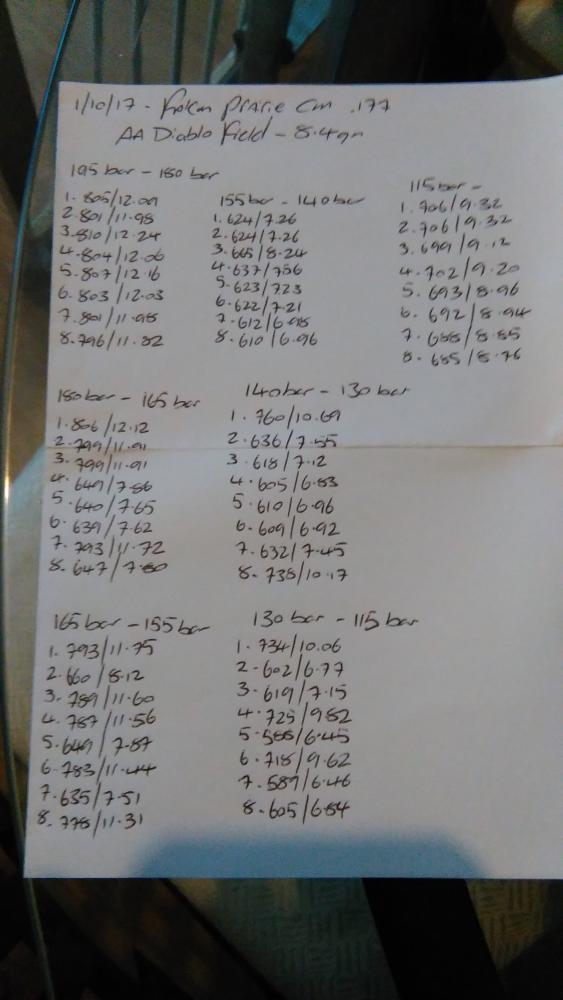 1/10/17 - Falcon Prarie .177
AA Diablo Field - 8.4gn
195 bar - 180 bar
1. 805/12.09
2. 801/11.98
3. 810/12.24
4. 804/12.06
5. 807/12.16
6. 803/12.03
7. 801/11.98
8. 796/11.82
180 bar - 165 bar
1. 806/12.12
2. 799/11.91
3. 799/11.91
4. 649/7.86
5. 640/7.65
6. 639/7.62
7. 793/11.72
8. 647/7.80
165 bar - 155 bar
1. 793/11.75
2. 660/8.12
3. 789/11.60
4. 787/11.56
5. 649/7.87
6. 783/11.44
7. 635/7.51
8. 778/11.31
155 bar - 140 bar
1. 624/7.26
2. 624/7.26
3. 665/8.24
4. 637/756
5. 623/723
6. 622/7.21
7. 612/6.98
8. 610/6.96
140 bar - 130 bar
1. 760/10.69
2. 636/7.55
3. 618/7.12
4. 605/6.83
5. 610/6.96
6. 609/6.92
7. 632/7.45
8. 738/10.17
130 bar - 115 bar
1. 734/10.06
2. 602/6.77
3. 619/7.15
4. 725/9.82
5. 588/6.45
6. 718/9.62
7. 589/6.46
8. 605/6.84
115 bar -
1. 706/9.32
2. 706/9.32
3. 699/9.12
4. 702/9.20
5. 693/8.96
6. 692/8.94
7. 688/8.85
8. 685/8.76